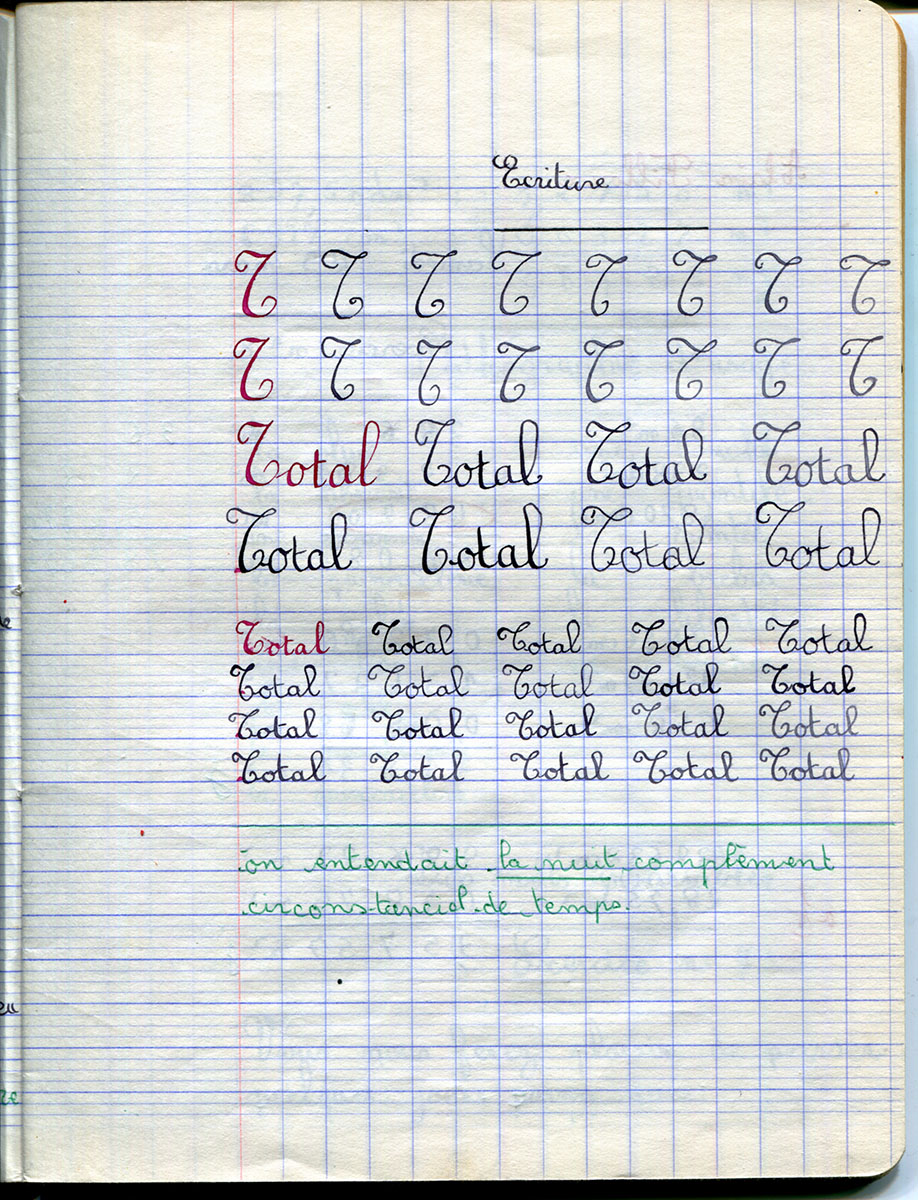 Ecriture
T T T T T T T T
T T T T T T T T
Total Total Total Total
Total Total Total Total
Total Total Total Total Total
Total Total Total Total Total
Total Total Total Total Total
Total Total Total Total Total
on entendait la nuit complèment
circonstanciel de temps.